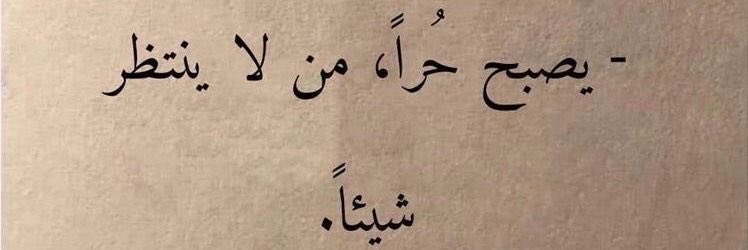 - يصبح حُراً، من لا ينتظر
شيئاً.